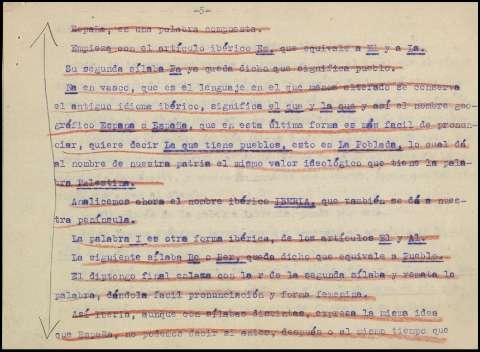 -5-
España, es una palabra compuesta.
Empieza con el artículo ibérico Es, que equivale a El y a La.
Su segunda sílaba Pa ya queda dicho que significa pueblo.
Na en vasco, que es el lenguaje en el que menos alterado se conserva
el antiguo idioma ibérico, significa el que y la que y así el nombre geo-
gráfico Espana o España, que en esta última forma es más facil de pronun-
ciar, quiere decir La que tiene pueblos, esto es La Poblada, lo cual dá
al nombre de nuestra patria el mismo valor ideológico que tiene la pala-
bra Palestina.
Analicemos ahora el nombre ibérico IBERIA, que también se dá a nues-
tra península.
La palabra I es otra forma ibérica, de los artículos El y Al.
La siguiente sílaba Be o Ber, queda dicho que equivale a Pueblo.
El diptongo final enlaza con la r de la segunda sílaba y remata la
palabra, dándola facil pronunciación y forma femenina.
Así Iberia, aunque con sílabas distintas, expresa la misma idea
que España, no podemos decir si antes, después o al mismo tiempo que